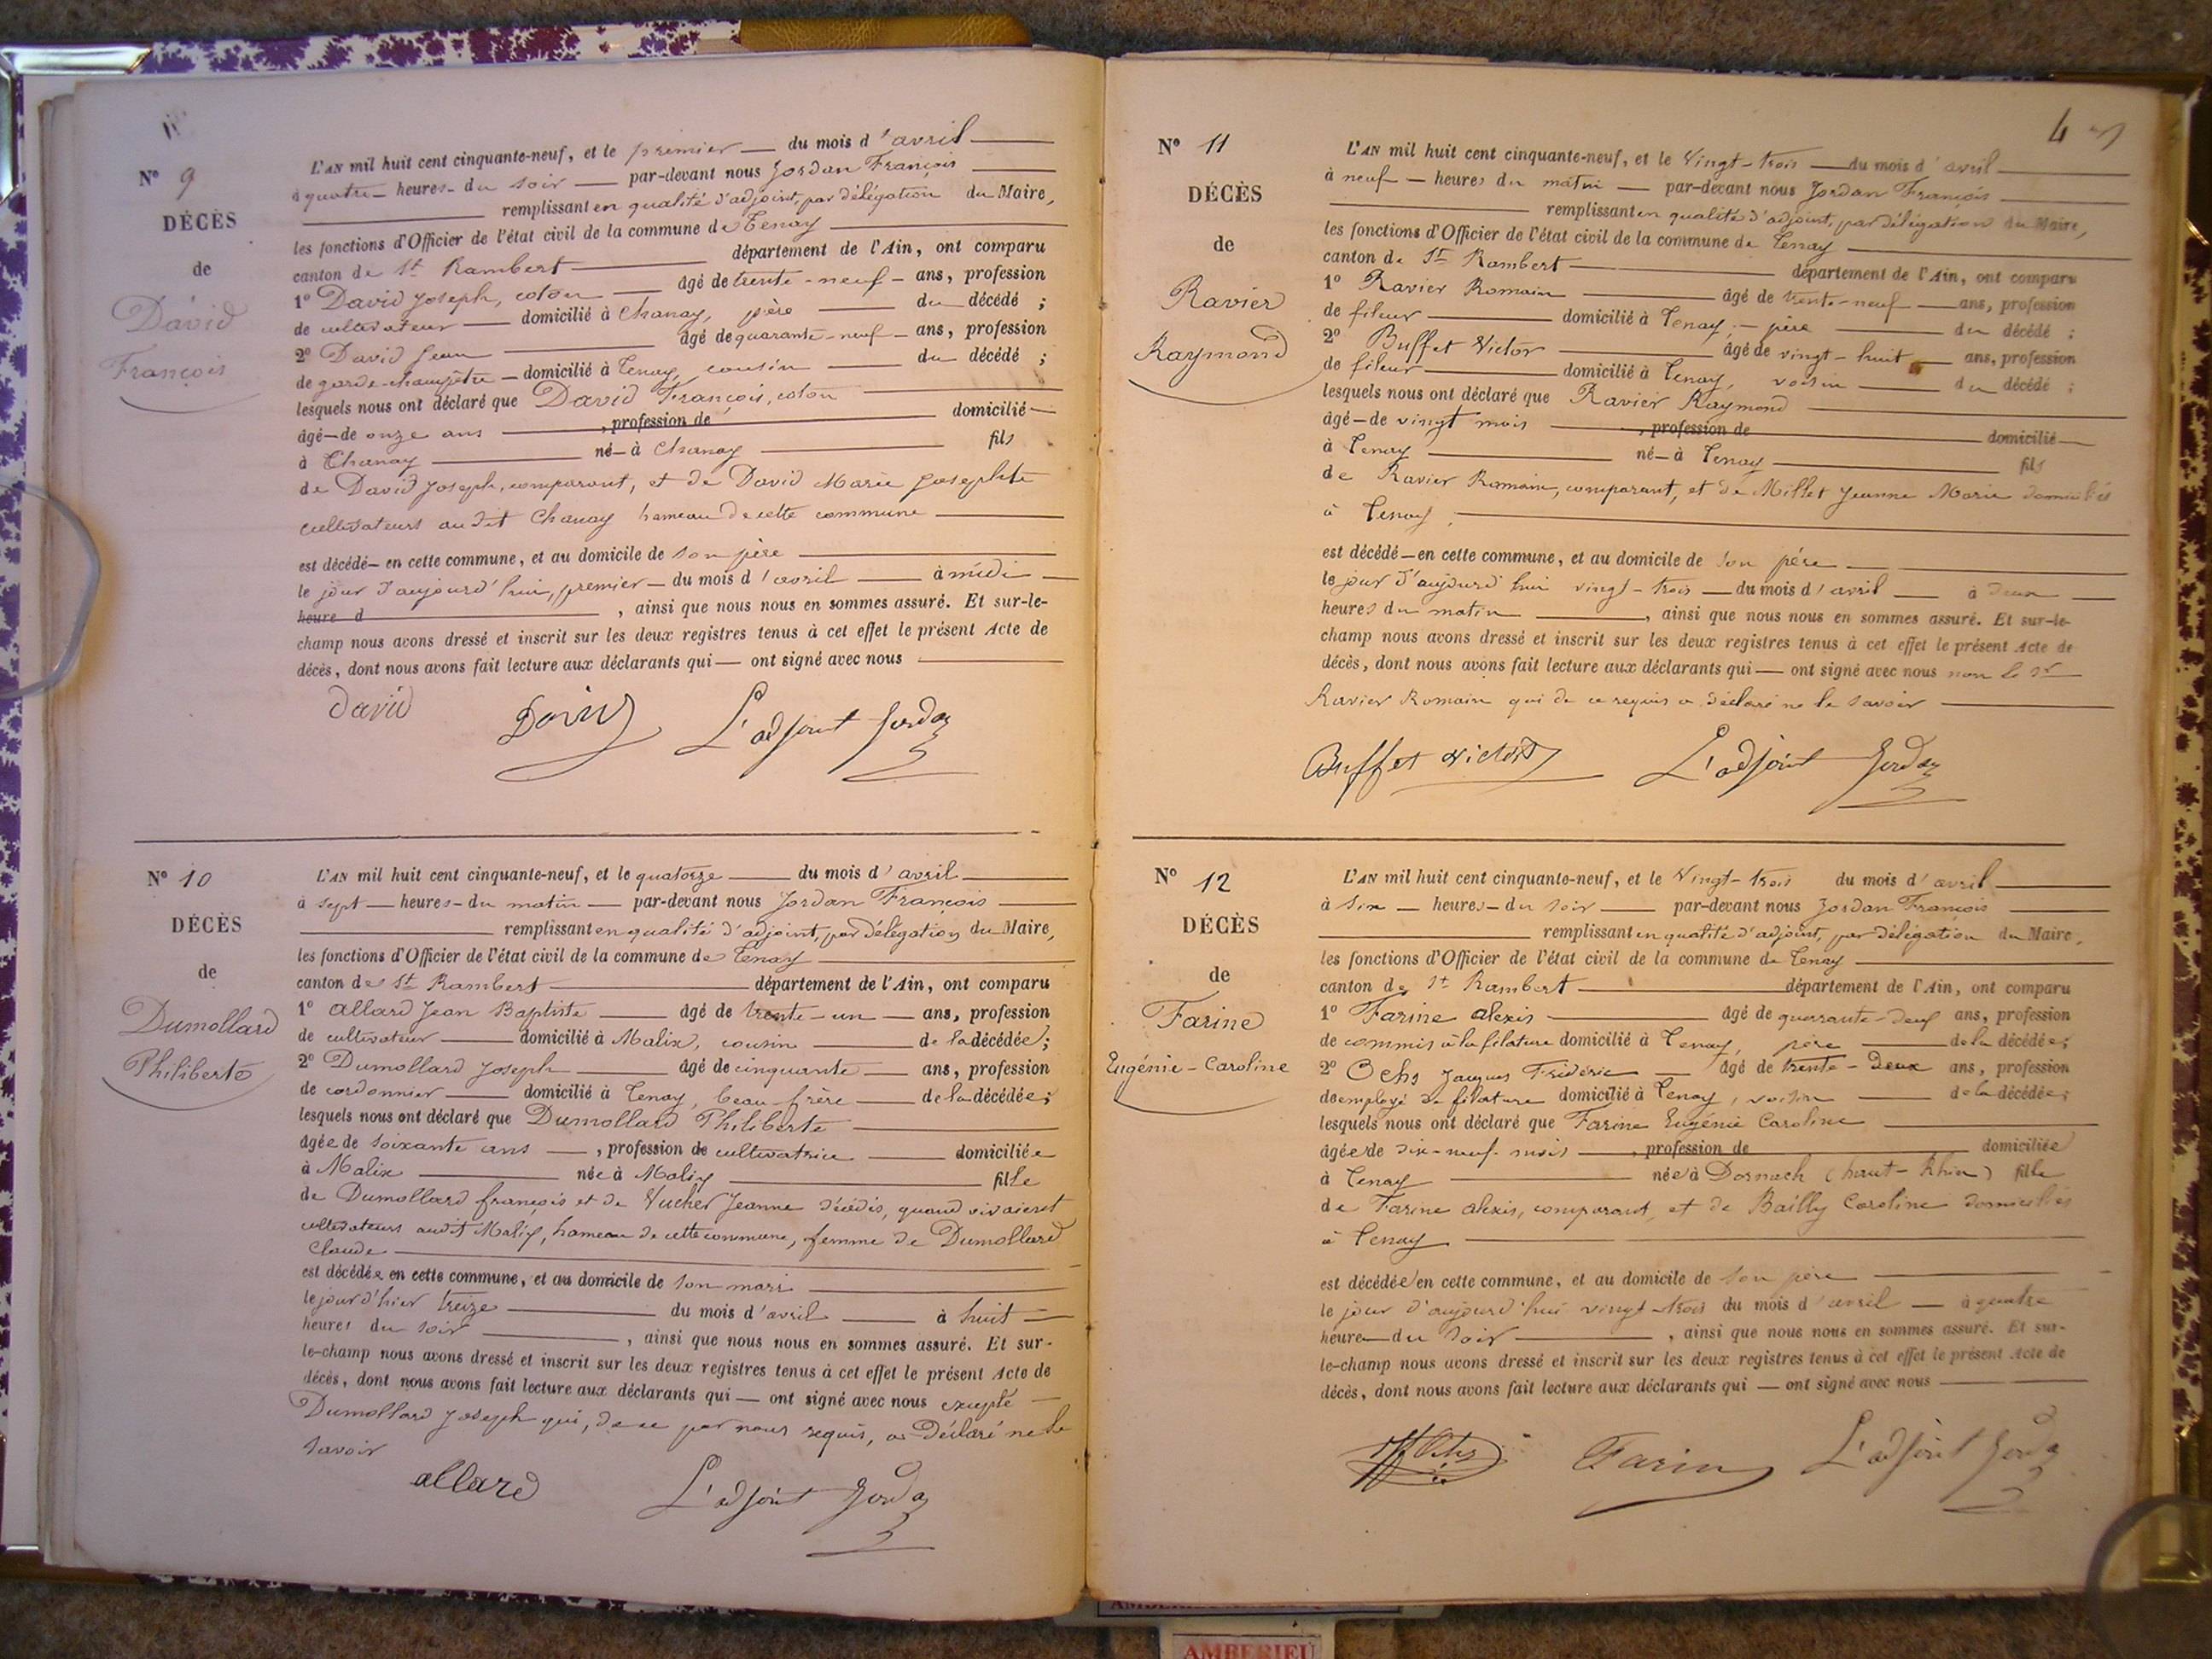 N° 9
DÉCÈS
de
David
François
L'AN mil huit cent cinquante-neuf, et le premier du mois d'avril
à quatre heures du soir par-devant nous Jordan François
remplissant en qualité d'adjoint, par délégation du Maire,
les fonctions d'Officier de l'état civil de la commune de Tenay
canton de St Rambert département de l'Ain, ont comparu
1° David Joseph, coton âgé de trente-neuf ans, profession
de cultivateur domicilié à Chanay, père du décédé ;
2° David Jean âgé de quarante-neuf ans, profession
de garde-champêtre domicilié à Tenay, cousin du décédé ;
lesquels nous ont déclaré que David François, coton
âgé de onze ans , profession de domicilié
à Chanay né à Chanay fils
de David Joseph, comparant, et de David Marie Josephte
cultivateurs audit Chanay hameau de cette commune
est décédé en cette commune, et au domicile de son père
le jour d'aujourd'hui, premier du mois d'avril à midi
heure d , ainsi que nous nous en sommes assuré. Et sur-le-
champ nous avons dressé et inscrit sur les deux registres tenus à cet effet le présent Acte de
décès, dont nous avons fait lecture aux déclarants qui ont signé avec nous
David David L'adjoint Jordan
N° 10
DÉCÈS
de
Dumollard
Philiberte
L'AN mil huit cent cinquante-neuf, et le quatorze du mois d'avril
à sept heures du matin par-devant nous Jordan François
remplissant en qualité d'adjoint, par délégation du Maire,
les fonctions d'Officier de l'état civil de la commune de Tenay
canton de St Rambert département de l'Ain, ont comparu
1° Allard Jean Baptiste âgé de trente-un ans, profession
de cultivateur domicilié à Malix, cousin de la décédée ;
2° Dumollard Joseph âgé de cinquante ans, profession
de cordonnier domicilié à Tenay, beau-frère de la décédée ;
lesquels nous ont déclaré que Dumollard Philiberte
âgée de soixante ans , profession de cultivatrice domiciliée
à Malix née à Malix fille
de Dumollard françois et de Vucher Jeanne décédés, quand vivaient
cultivateurs audit Malix, hameau de cette commune, femme de Dumollard
Claude
est décédée en cette commune, et au domicile de son mari
le jour d'hier treize du mois d'avril à huit
heures du soir , ainsi que nous nous en sommes assuré. Et sur-
le-champ nous avons dressé et inscrit sur les deux registres tenus à cet effet le présent Acte de
décès, dont nous avons fait lecture aux déclarants qui ont signé avec nous excepté
Dumollard Joseph qui, de ce par nous requis, a déclaré ne le
savoir
allard L'adjoint Jordan
4
N° 11
DÉCÈS
de
Ravier
Raymond
L'AN mil huit cent cinquante-neuf, et le Vingt-trois du mois d'avril
à neuf heures du matin par-devant nous Jordan François
remplissant en qualité d'adjoint, par délégation du Maire,
les fonctions d'Officier de l'état civil de la commune de Tenay
canton de St Rambert département de l'Ain, ont comparu
1° Ravier Romain âgé de trente-neuf ans, profession
de fileur domicilié à Tenay, père du décédé ;
2° Buffet Victor âgé de vingt-huit ans, profession
de fileur domicilié à Tenay, voisin du décédé ;
lesquels nous ont déclaré que Ravier Raymond
âgé de vingt mois , profession de domicilié
à Tenay né à Tenay fils
de Ravier Romain, comparant, et de Millet Jeanne Marie domiciliés
à Tenay
est décédé en cette commune, et au domicile de son père
le jour d'aujourd'hui vingt-trois du mois d'avril à deux
heures du matin , ainsi que nous nous en sommes assuré. Et sur-le-
champ nous avons dressé et inscrit sur les deux registres tenus à cet effet le présent Acte de
décès, dont nous avons fait lecture aux déclarants qui ont signé avec nous non le Sr
Ravier Romain qui de ce requis a déclaré ne le savoir
Buffet Victor L'adjoint Jordan
N° 12
DÉCÈS
de
Farine
Eugénie-Caroline
L'AN mil huit cent cinquante-neuf, et le Vingt-trois du mois d'avril
à six heures du soir par-devant nous Jordan François
remplissant en qualité d'adjoint, par délégation du Maire,
les fonctions d'Officier de l'état civil de la commune de Tenay
canton de St Rambert département de l'Ain, ont comparu
1° Farine alexis âgé de quarante-deuf ans, profession
de commis à la filature domicilié à Tenay, père de la décédée ;
2° Ochs Jacques Fridéric âgé de trente-deux ans, profession
de employé de filature domicilié à Tenay, voisin de la décédée ;
lesquels nous ont déclaré que Farine Eugénie Caroline
âgée de dix-neuf mois , profession de domiciliée
à Tenay née à Dornach (haut-Rhin) fille
de Farine alexis, comparant, et de Bailly Caroline domiciliés
à Tenay
est décédée en cette commune, et au domicile de son père
le jour d'aujourd'hui vingt-trois du mois d'avril à quatre
heure du soir , ainsi que nous nous en sommes assuré. Et sur-
le-champ nous avons dressé et inscrit sur les deux registres tenus à cet effet le présent Acte de
décès, dont nous avons fait lecture aux déclarants qui ont signé avec nous
Ochs Farine L'adjoint Jordan
AMBERIEU